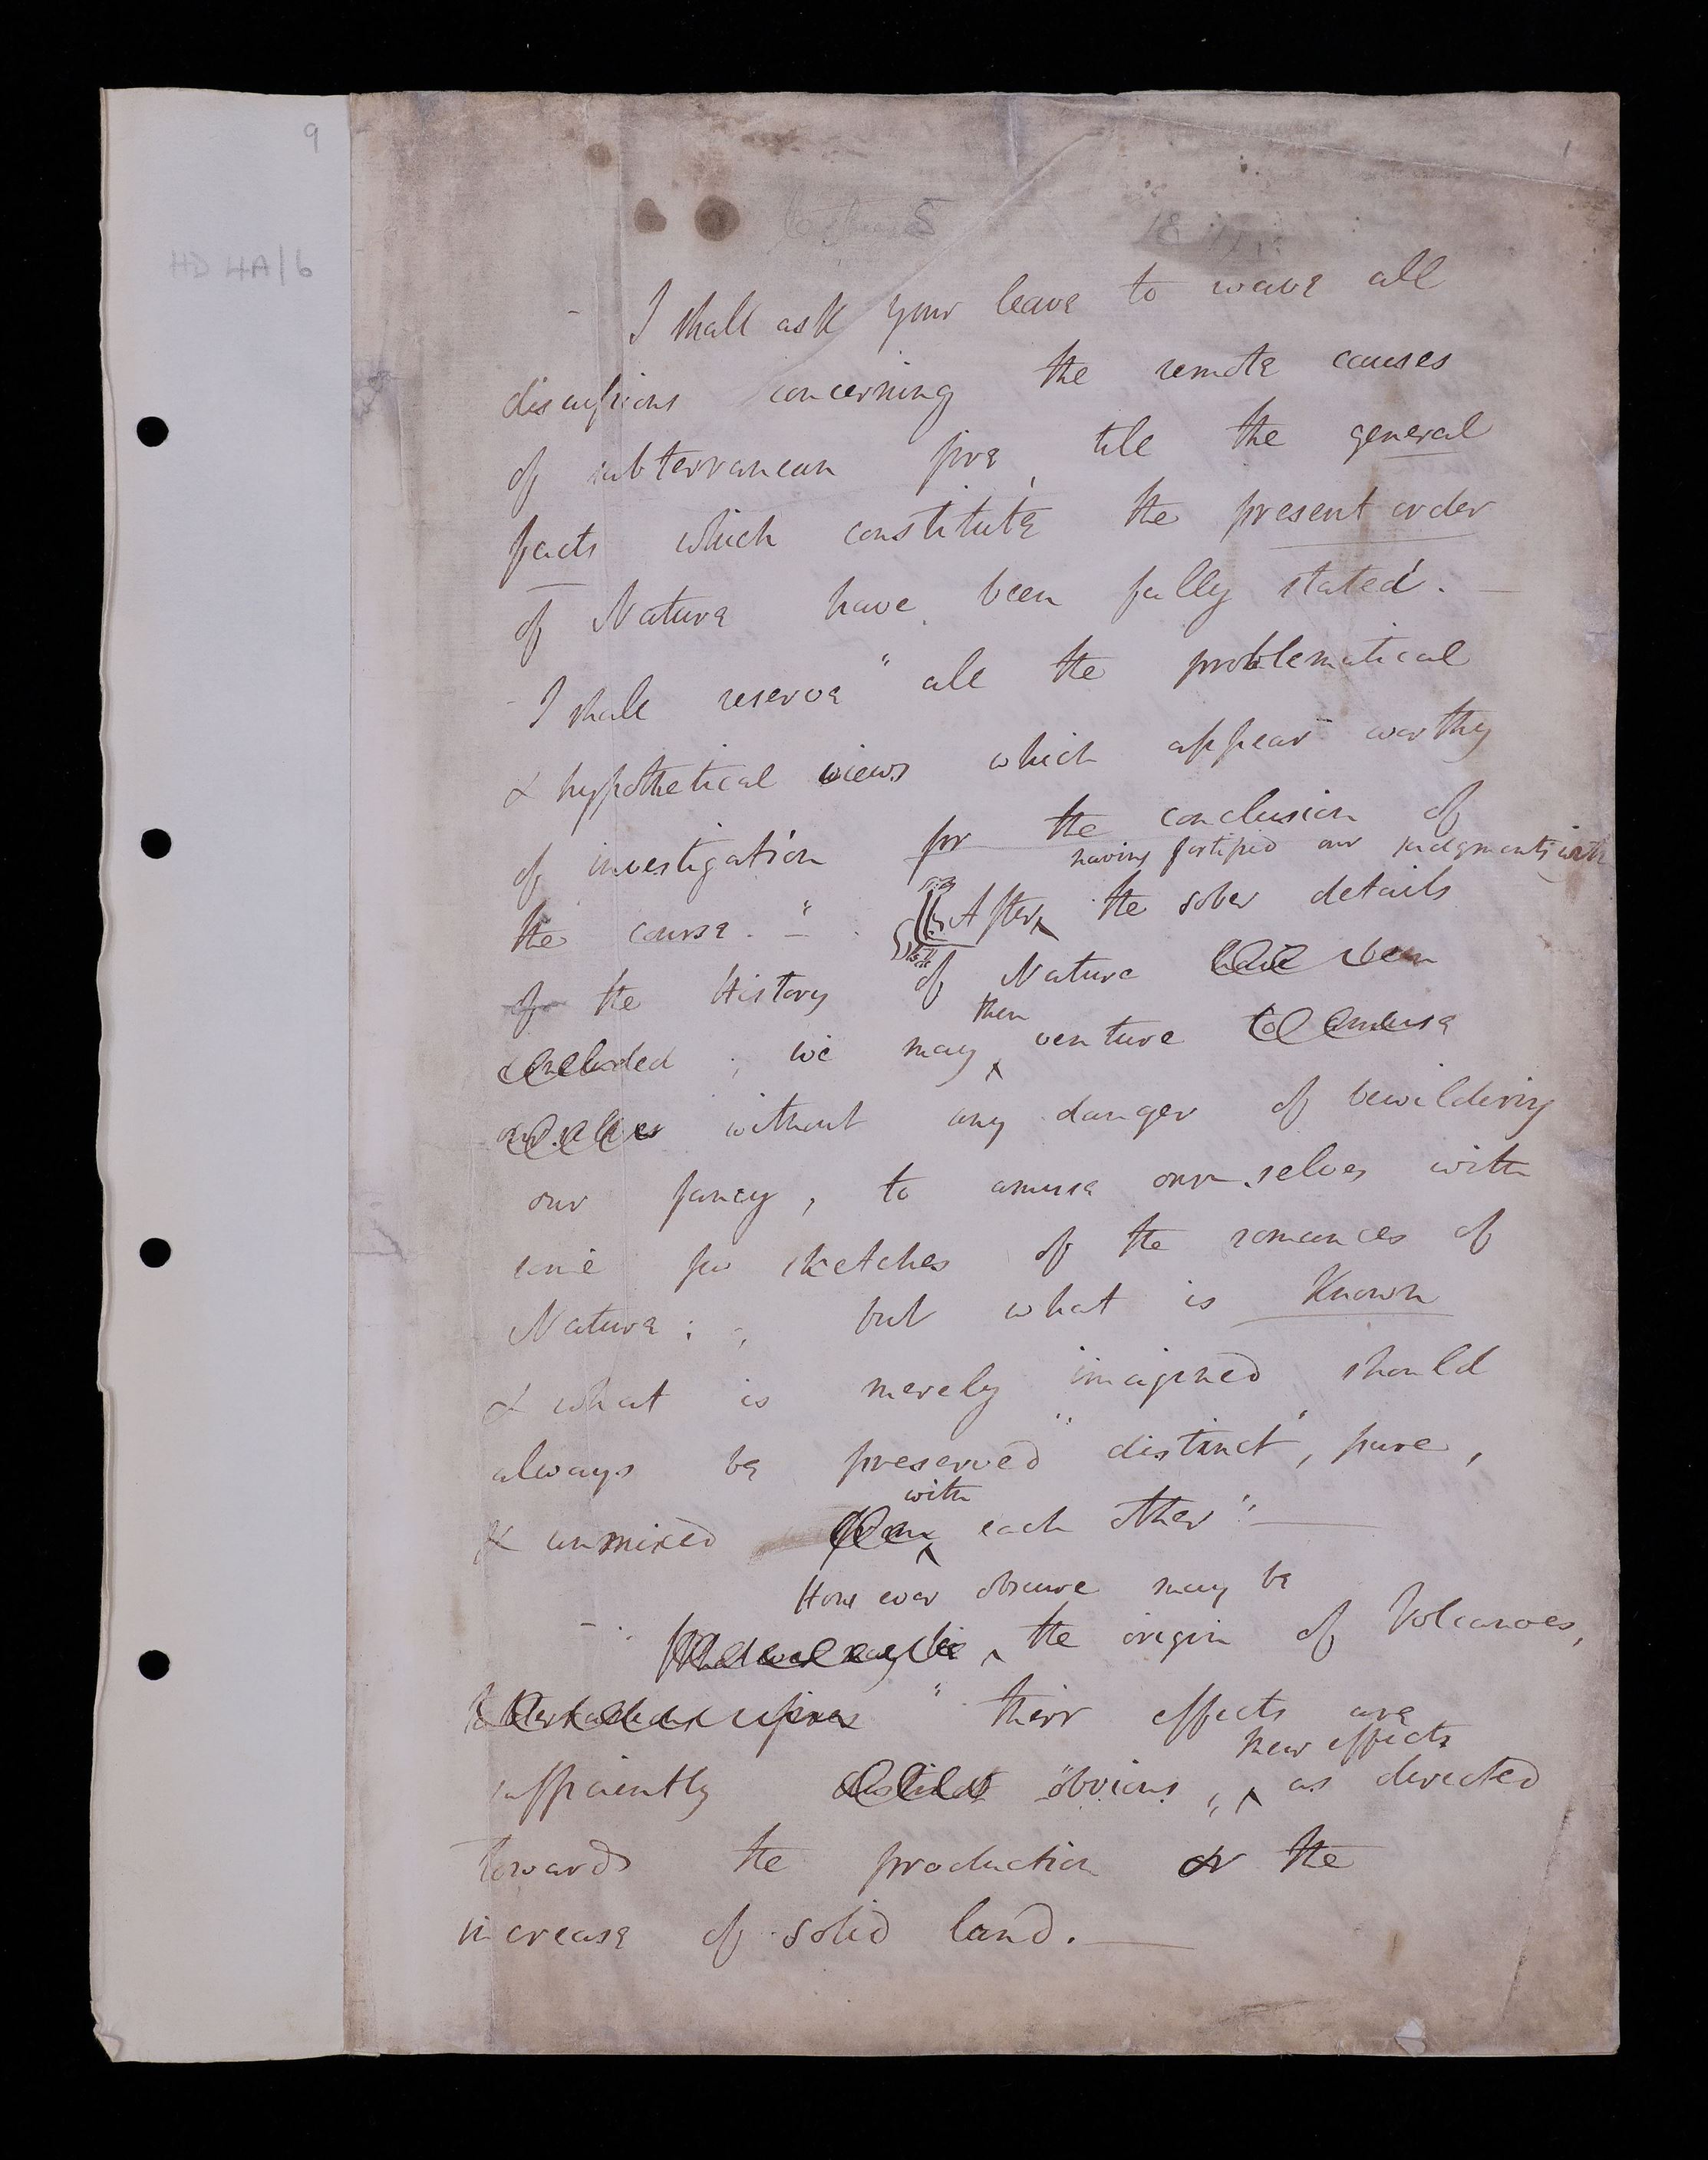 9
HD 4A/6
1
Lecture 5
I shall ask your leave to wave all
discussions concerning the remote causes
of subterranean fire, till the general
facts which constitute the present order
of Nature have been fully stated. —
- I shall reserve " all the problematical
& hypothetical views which appear worthy
of investigation for the conclusion of
having fortified our judgments with
the course. " — After the sober details
of the History of Nature have been
then
concluded ; we may venture to amuse
ourselves without any danger of bewildering
our fancy, to amuse ourselves with
some few sketches of the romances of
Nature: -, but what is Known
& what is merely imagined should
always be preserved " distinct", pure,
with
& unmixed from each other": —
However obscure may be
the origin of Volcanoes,
" their effects are
new effects
sufficiently distinct "obvious, as directed
towards the production or the
increase of solid land. —